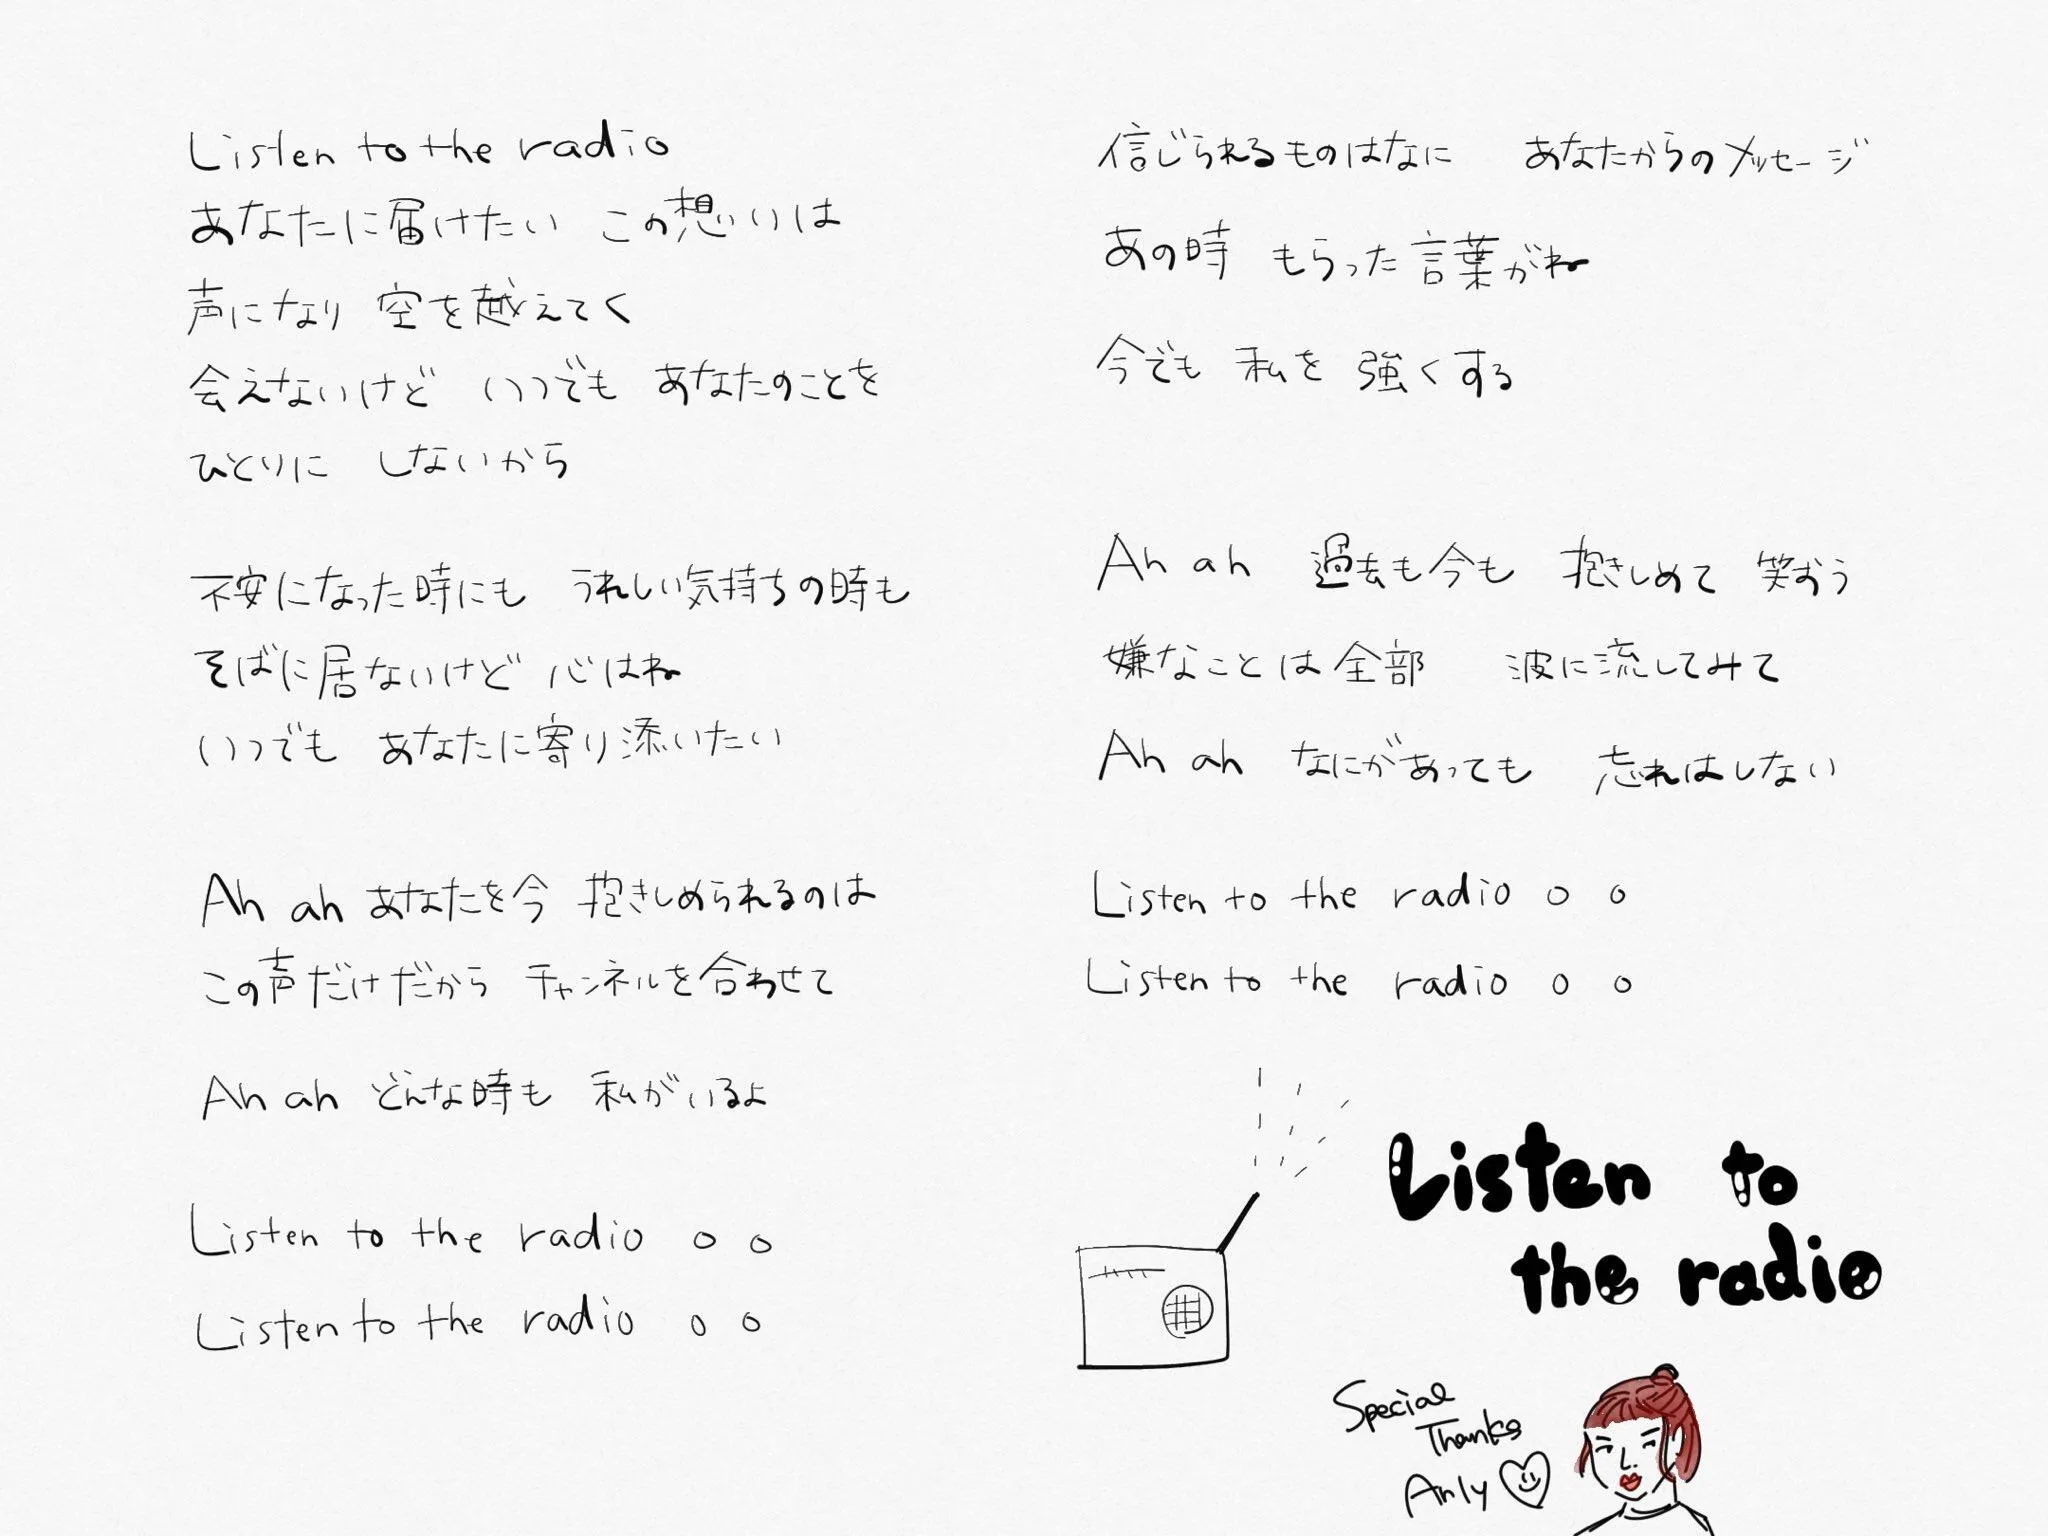 Listen to the radio
あなたに届けたい この想いは
声になり 空を越えてく
会えないけど いつでも あなたのことを
ひとりに しないから
不安になった時にも うれしい気持ちの時も
そばに居ないけど 心はね
いつでも あなたに寄り添いたい
Ah ah あなたを今 抱きしめられるのは
この声だけだから チャンネルを合わせて
Ah ah どんな時も 私がいるよ
Listen to the radio o o
Listen to the radio o o
信じられるものはなに あなたからのメッセージ
あの時 もらった言葉がね
今でも 私を 強くする
Ah ah 過去も今も 抱きしめて 笑おう
嫌なことは全部 波に流してみて
Ah ah なにがあっても 忘れはしない
Listen to the radio o o
Listen to the radio o o
Listen to
the radio
Special
Thanks
Anly